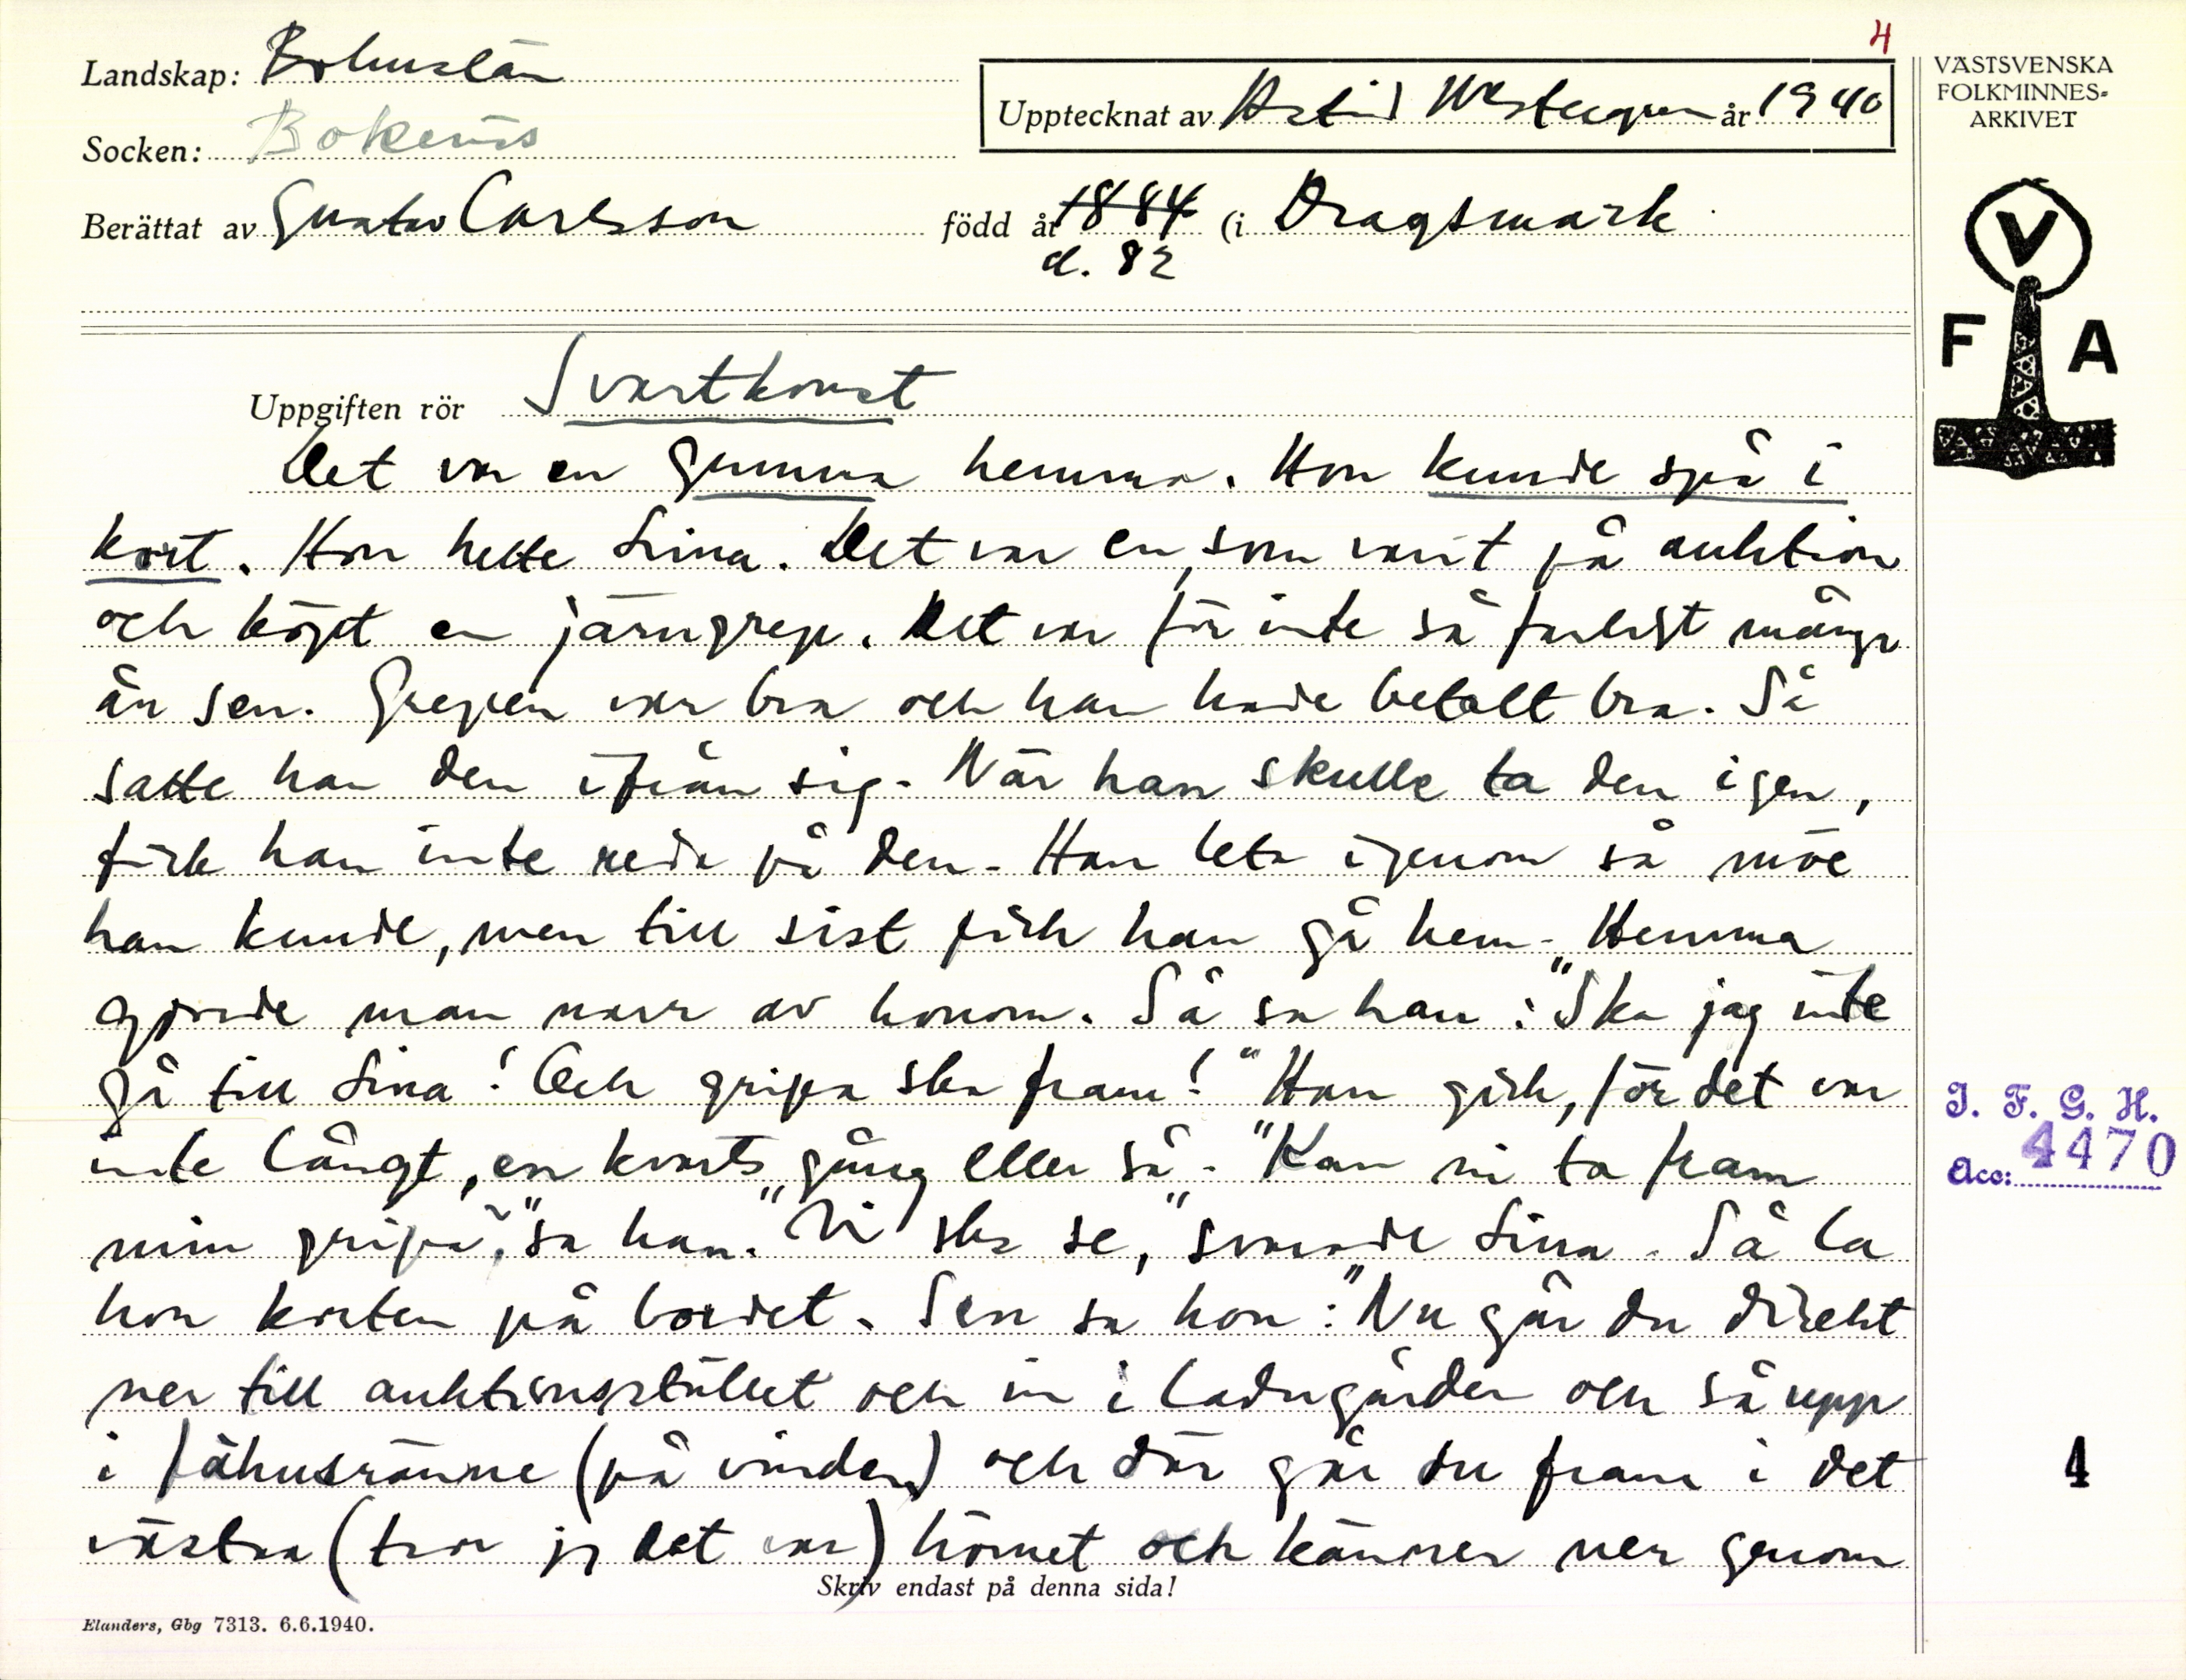 4
Landskap: Bohuslän
Upptecknat av Astrid Westergren år 1940
Socken: Bokenäs
Berättat av Gustav Carlsson född år 1884 (i Dragsmark
d. 82
VÄSTSVENSKA
FOLKMINNES-
ARKIVET
V
F A
Uppgiften rör Svartkonst
Det var en gumma hemma. Hon kunde spå i
kort. Hon hette Lina. Det var en, som varit på auktion
och köpt en järngrep. Det var för inte så farligt många
år sen. Grepen var bra och han hade betalt bra. Så
satte han den ifrån sig. När han skulle ta den igen,
fick han inte reda på den. Han leta igenom så möe
han kunde, men till sist fick han gå hem. Hemma
gjorde man narr av honom. Så sa han: "Ska jag inte
gå till Lina! Och gripa ska fram!" Han gick, för det var
inte långt, en kvarts gång eller så. "Kan ni ta fram
min gripa?," sa han. "Vi ska se," svarade Lina. Så la
hon korten på bordet. Sen sa hon: "Nu går du direkt
ner till auktionsstället och in i ladugården och så upp
i fähusränne (på vinden) och där går du fram i det
västra (tror jg det var) hörnet och känner ner genom
Skriv endast på denna sida!
Elanders, Gbg 7313. 6.6.1940.
I. F. G. H.
Acc: 4470
4